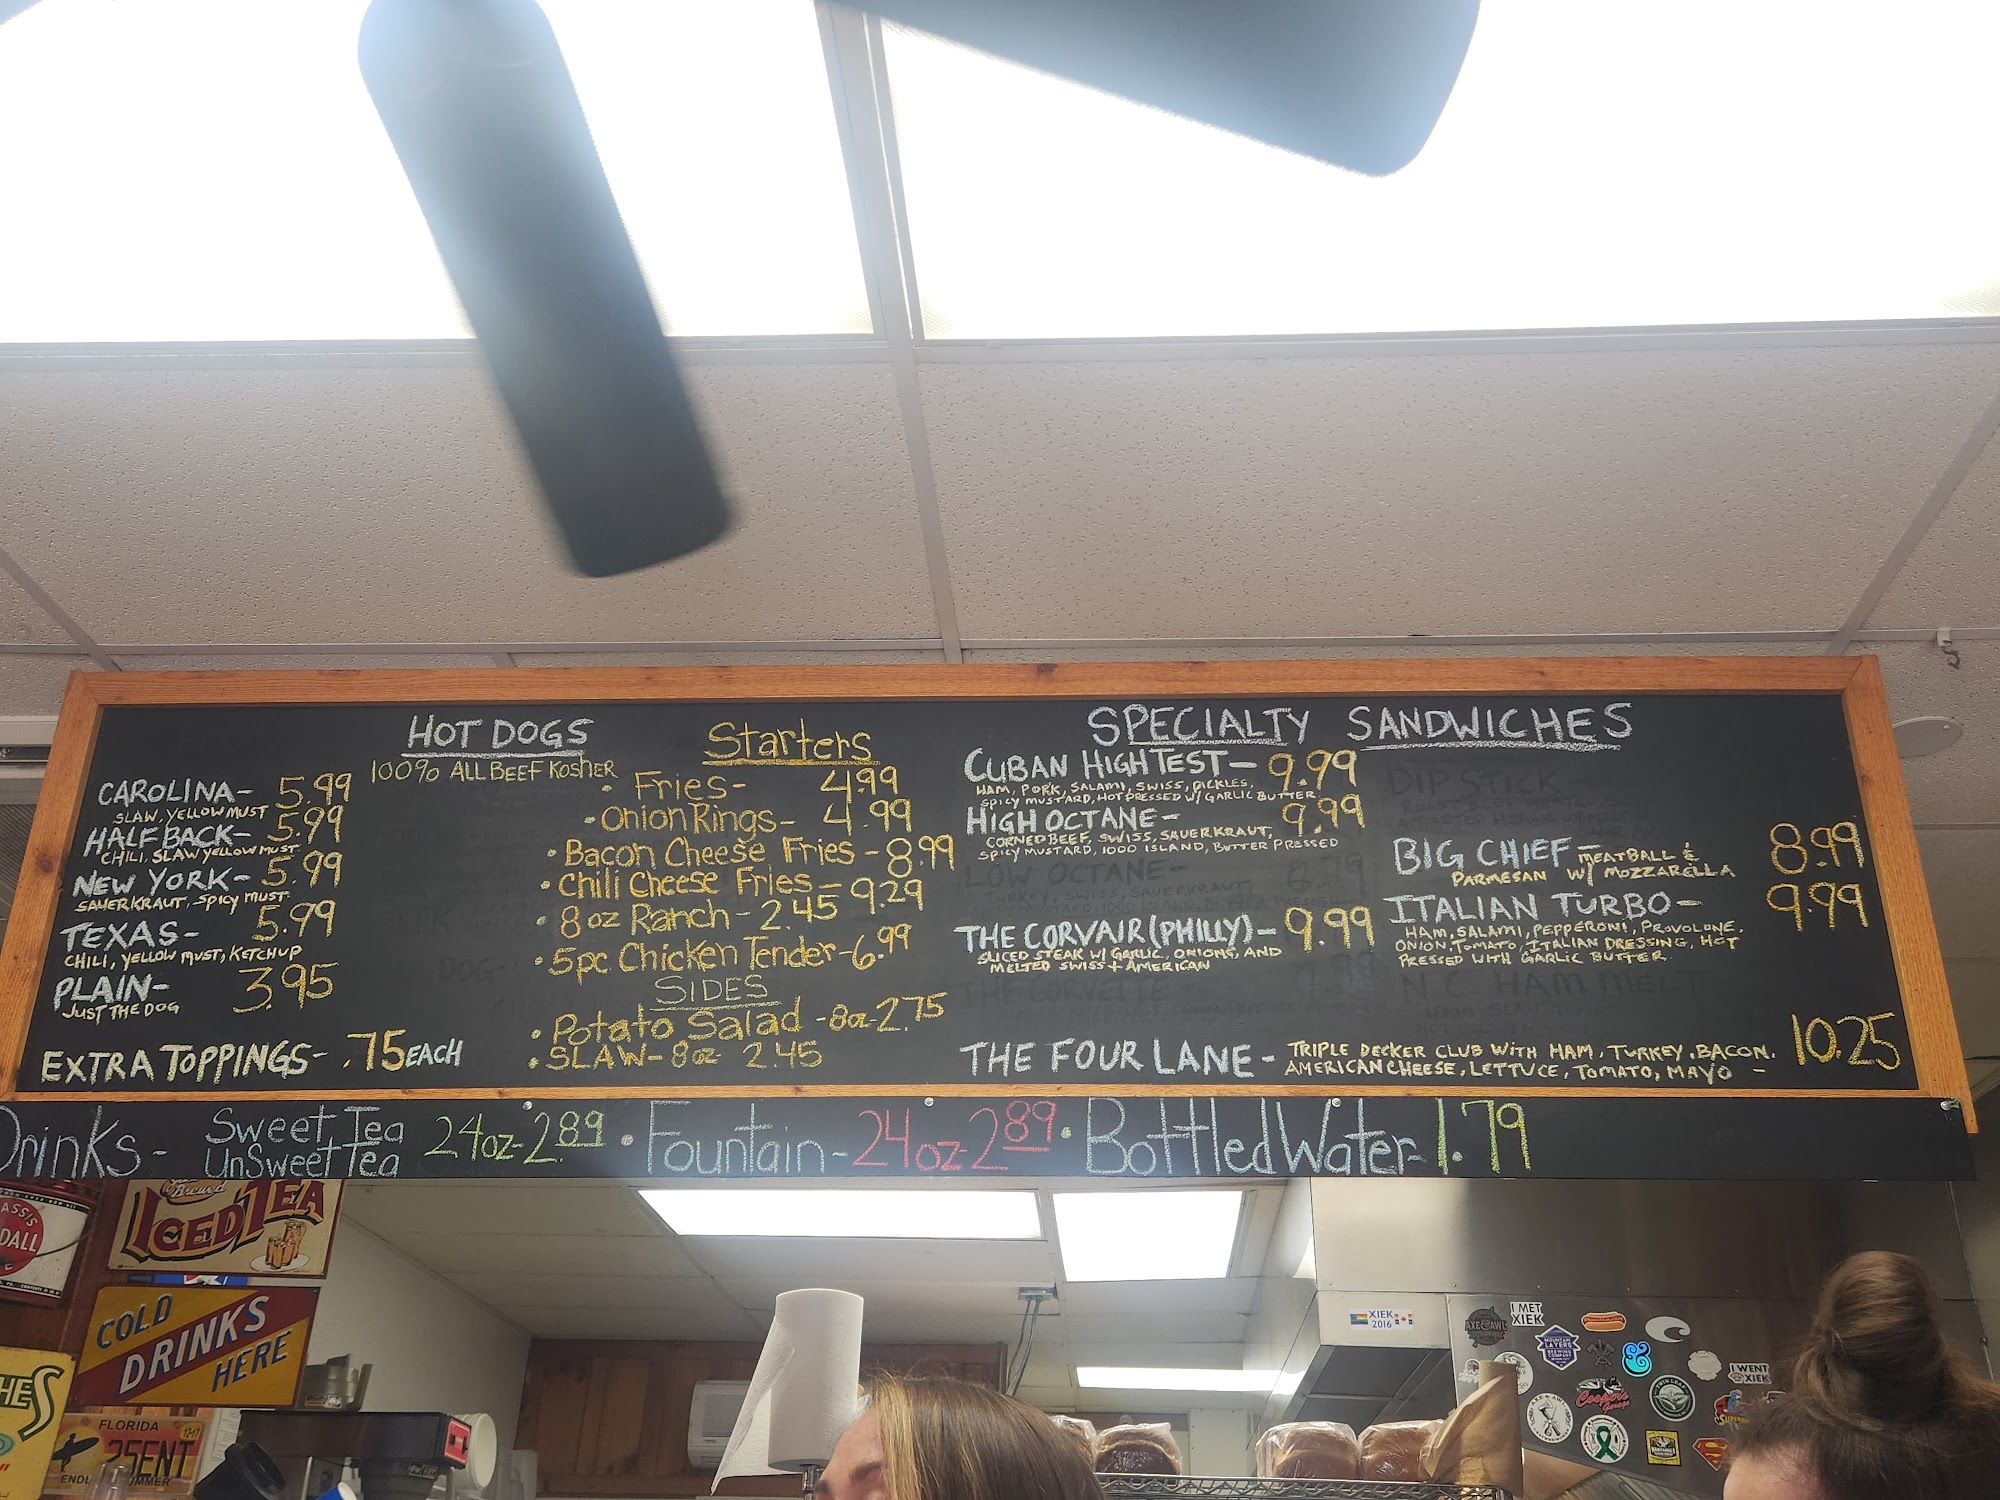 HOT DOGS
100% ALL BEEF KOSHER
CAROLINA- 5.99
SLAW, YELLOW MUST
HALF BACK- 5.99
CHILI, SLAW YELLOW MUST
NEW YORK- 5.99
SAUERKRAUT, SPICY MUST.
TEXAS- 5.99
CHILI, YELLOW MUST, KETCHUP
PLAIN- 3.95
JUST THE DOG
EXTRA TOPPINGS- .75 EACH
Starters
• Fries- 4.99
• Onion Rings- 4.99
• Bacon Cheese Fries - 8.99
• Chili Cheese Fries - 9.29
• 8 oz Ranch - 2.45
• 5pc Chicken Tender - 6.99
SIDES
• Potato Salad - 8oz - 2.75
• SLAW- 8oz 2.45
SPECIALTY SANDWICHES
CUBAN HIGH TEST- 9.99
HAM, PORK, SALAMI, SWISS, PICKLES,
SPICY MUSTARD, HOT PRESSED W/ GARLIC BUTTER
HIGH OCTANE- 9.99
CORNED BEEF, SWISS, SAUERKRAUT,
SPICY MUSTARD, 1000 ISLAND, BUTTER PRESSED
LOW OCTANE- 8.79
TURKEY, SWISS, SAUERKRAUT,
THE CORVAIR (PHILLY)- 9.99
SLICED STEAK W/ GARLIC, ONIONS, AND
MELTED SWISS + AMERICAN
THE CORVETTE
DIP STICK
BIG CHIEF- MEATBALL & 8.99
PARMESAN W/ MOZZARELLA
ITALIAN TURBO- 9.99
HAM, SALAMI, PEPPERONI, PROVOLONE,
ONION, TOMATO, ITALIAN DRESSING, HOT
PRESSED WITH GARLIC BUTTER.
N.C. HAM MELT
THE FOUR LANE - TRIPLE DECKER CLUB WITH HAM, TURKEY, BACON, 10.25
AMERICAN CHEESE, LETTUCE, TOMATO, MAYO -
Drinks- Sweet Tea 24oz-2.89 • Fountain-24oz-2.89 • Bottled Water- 1.79
UnSweet Tea
Brewed
ICED TEA
COLD
DRINKS
HERE
HES
FLORIDA
12-17
25ENT
XIEK
2016
I MET
XIEK
AXE & AWL
MOUNTAIN
LAYERS
BREWING
COMPANY
&
I WENT
XIEK
Coopers
Garage